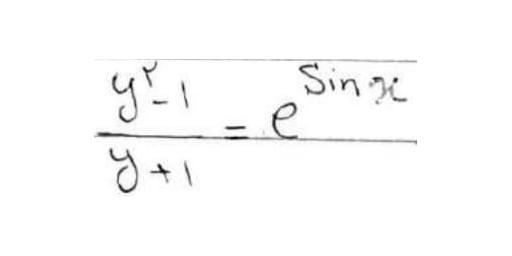 y² - 1 / y + 1 = e^(sin x)